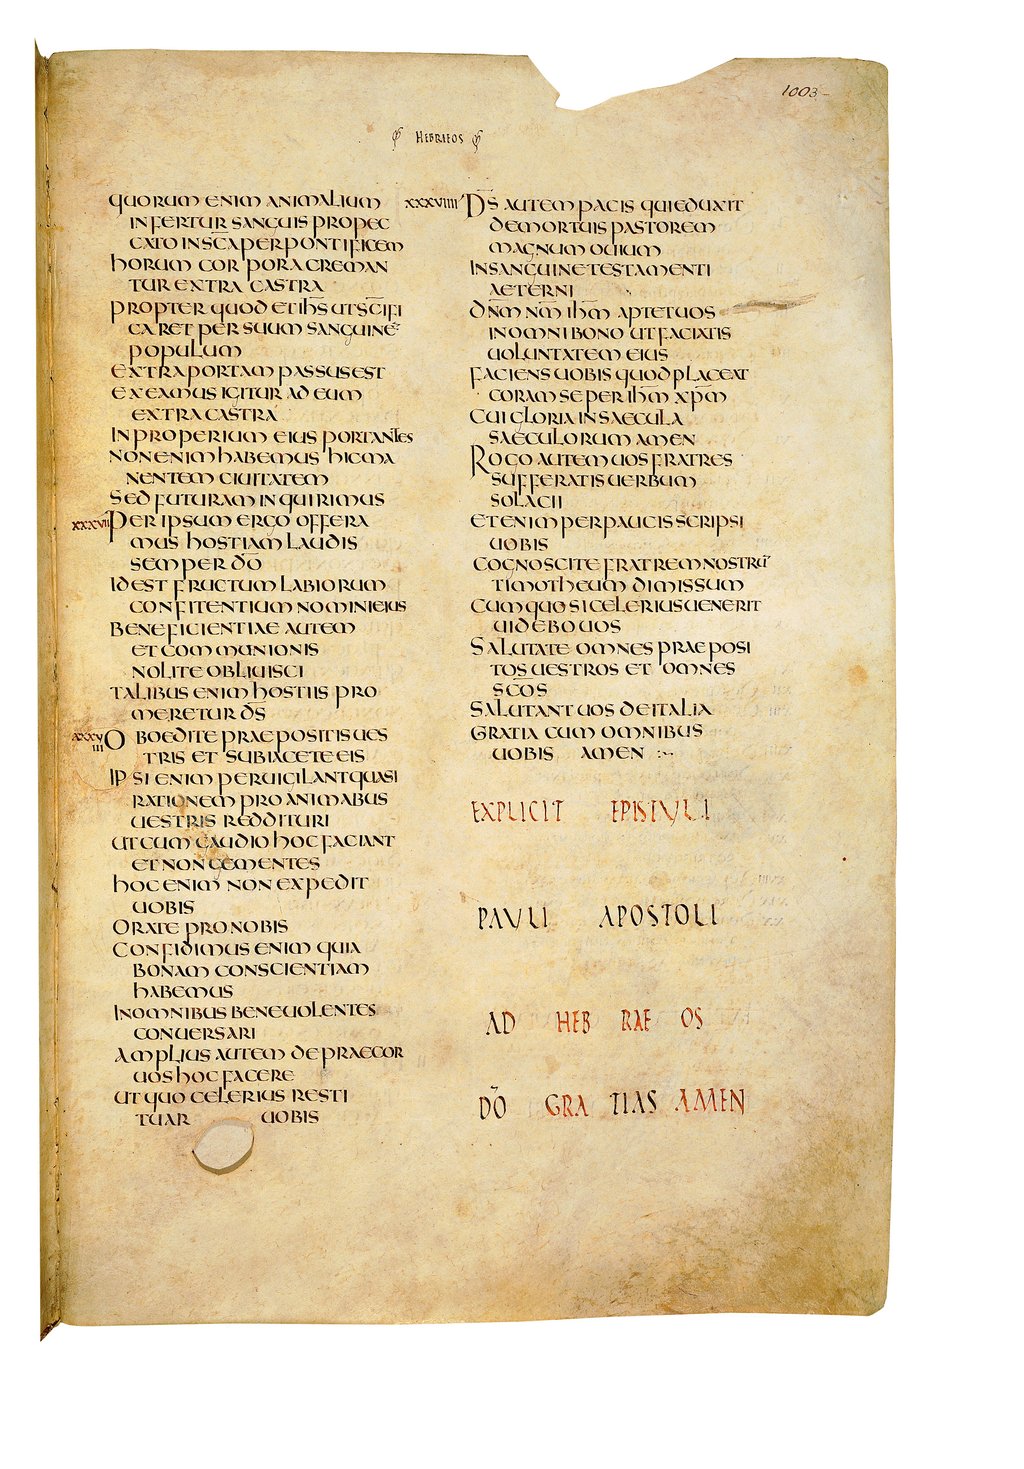 1003
HEBRAEOS
QUORUM ENIM ANIMALIUM
INFERTUR SANGUIS PROPEC
CATO IN SC̅A PER PONTIFICEM
HORUM CORPORA CREMAN
TUR EXTRA CASTRA
PROPTER QUOD ET IH̅S UT SC̅IFI
CARET PER SUUM SANGUINE̅
POPULUM
EXTRA PORTAM PASSUS EST
EXEAMUS IGITUR AD EUM
EXTRA CASTRA
INPROPERIUM EIUS PORTANTES
NON ENIM HABEMUS HIC MA
NENTEM CIUITATEM
SED FUTURAM INQUIRIMUS
XXXVII PER IPSUM ERGO OFFERA
MUS HOSTIAM LAUDIS
SEMPER D̅O
ID EST FRUCTUM LABIORUM
CONFITENTIUM NOMINI EIUS
BENEFICIENTIAE AUTEM
ET COMMUNIONIS
NOLITE OBLIUISCI
TALIBUS ENIM HOSTIIS PRO
MERETUR D̅S
XXXVIII OBOEDITE PRAEPOSITIS UES
TRIS ET SUBIACETE EIS
IPSI ENIM PERUIGILANT QUASI
RATIONEM PRO ANIMABUS
UESTRIS REDDITURI
UT CUM GAUDIO HOC FACIANT
ET NON GEMENTES
HOC ENIM NON EXPEDIT
UOBIS
ORATE PRO NOBIS
CONFIDIMUS ENIM QUIA
BONAM CONSCIENTIAM
HABEMUS
IN OMNIBUS BENE UOLENTES
CONUERSARI
AMPLIUS AUTEM DEPRAECOR
UOS HOC FACERE
UT QUO CELERIUS RESTI
TUAR UOBIS
XXXVIIII D̅S AUTEM PACIS QUI EDUXIT
DE MORTUIS PASTOREM
MAGNUM OUIUM
IN SANGUINE TESTAMENTI
AETERNI
DN̅M N̅M IH̅M APTET UOS
IN OMNI BONO UT FACIATIS
UOLUNTATEM EIUS
FACIENS UOBIS QUOD PLACEAT
CORAM SE PER IH̅M XP̅M
CUI GLORIA IN SAECULA
SAECULORUM AMEN
ROGO AUTEM UOS FRATRES
SUFFERATIS UERBUM
SOLACII
ETENIM PERPAUCIS SCRIPSI
UOBIS
COGNOSCITE FRATREM NOSTRU̅
TIMOTHEUM DIMISSUM
CUM QUO SI CELERIUS UENERIT
UIDEBO UOS
SALUTATE OMNES PRAEPOSI
TOS UESTROS ET OMNES
SC̅OS
SALUTANT UOS DE ITALIA
GRATIA CUM OMNIBUS
UOBIS AMEN
EXPLICIT EPISTULI
PAULI APOSTOLI
AD HEBRAEOS
D̅O GRATIAS AMEN